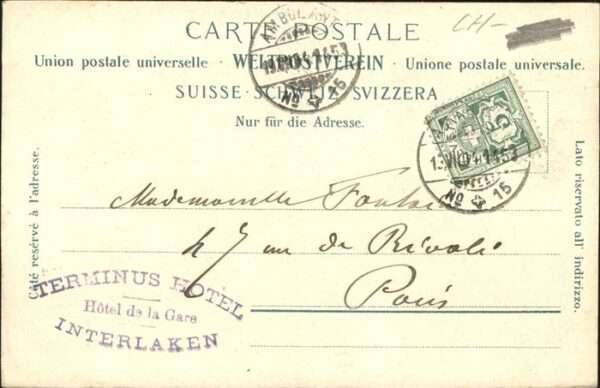 CARTE POSTALE
CH-
Union postale universelle - WELTPOSTVEREIN - Unione postale universale.
SUISSE-SCHWEIZ-SVIZZERA
Nur für die Adresse.
AMBULANT
Nº 15
Nº 15
5
Côté réservé à l'adresse.
Lato riservato all' indirizzo.
Mademoiselle
47 rue de Rivoli
Paris
TERMINUS HOTEL
Hôtel de la Gare
INTERLAKEN